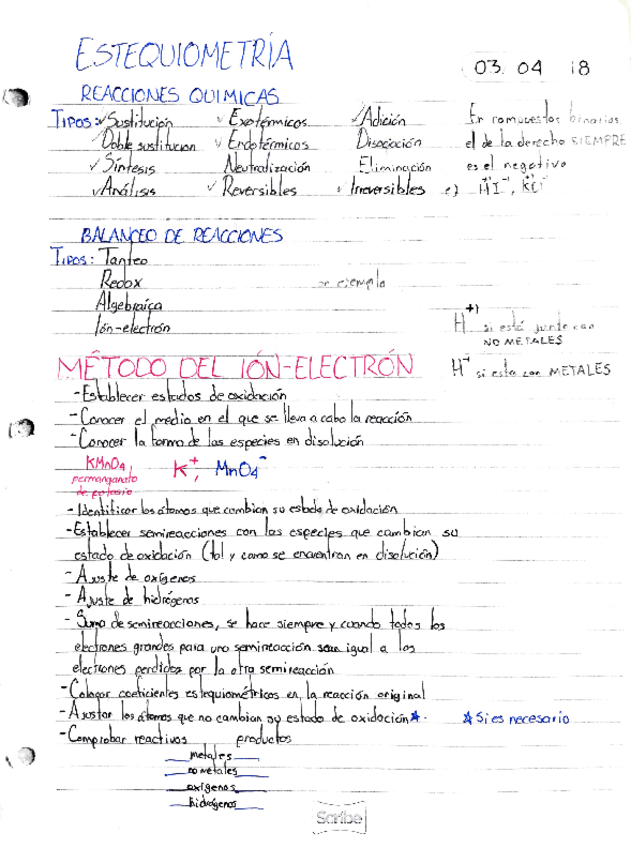 ESTEQUIOMETRÍA
03 04 18
REACCIONES QUIMICAS
TIPOS: ✓Sustitución ✓ Exotérmicos ✓Adición
✓Doble sustitucion ✓ Endotérmicos Disociación
✓Síntesis Neutralización Eliminación
✓Análisis ✓Reversibles ✓ Irreversibles
En compuestos binarios
el de la derecho SIEMPRE
es el negativo
BALANCEO DE REACCIONES
TIPOS: Tanteo
Redox
Algebraíca
Ión-electrón
ejemplo
H⁺¹ si está junto con
NO METALES
H⁻ si esta con METALES
MÉTODO DEL IÓN-ELECTRÓN
-Establecer estados de oxidación
-Conocer el medio en el que se lleva a cabo la reacción
-Conocer la forma de las especies en disolución
KMnO₄ K⁺, MnO₄⁻
permanganato
de potasio
-Identificar los átomos que cambian su estado de oxidación
-Establecer semireacciones con las especies que cambian su
estado de oxidación (tal y como se encuentran en disolución)
-Ajuste de oxígenos
-Ajuste de hidrógenos
-Suma de semireacciones, se hace siempre y cuando todos los
electrones grandes para una semireacción sean igual a los
electrones perdidos por la otra semireacción
-Colocar coeficientes estequiométricos en la reacción original
-Ajustar los átomos que no cambian su estado de oxidación★. ★Si es necesario
-Comprobar reactivos productos
metales
no metales
oxígenos
hidrógenos
Scribe